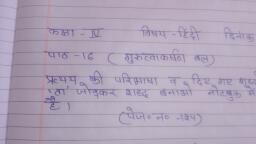 कक्षा - IV विषय - हिंदी दिनांक
पाठ - 16 ( गुरुत्वाकर्षण बल )
प्रत्यय की परिभाषा व दिए गए शब्द
'ता' जोड़कर शब्द बनाओ नोटबुक में
है।
( पेज० न० - 124 )